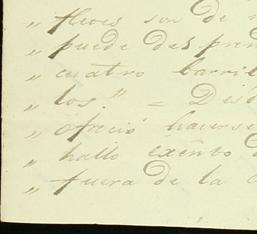 „ fleves son de
„ puede des pren
„ cuatro barril
„ los." = Dist
„ ofreció hacerse
„ hallo exento
„ fuera de la